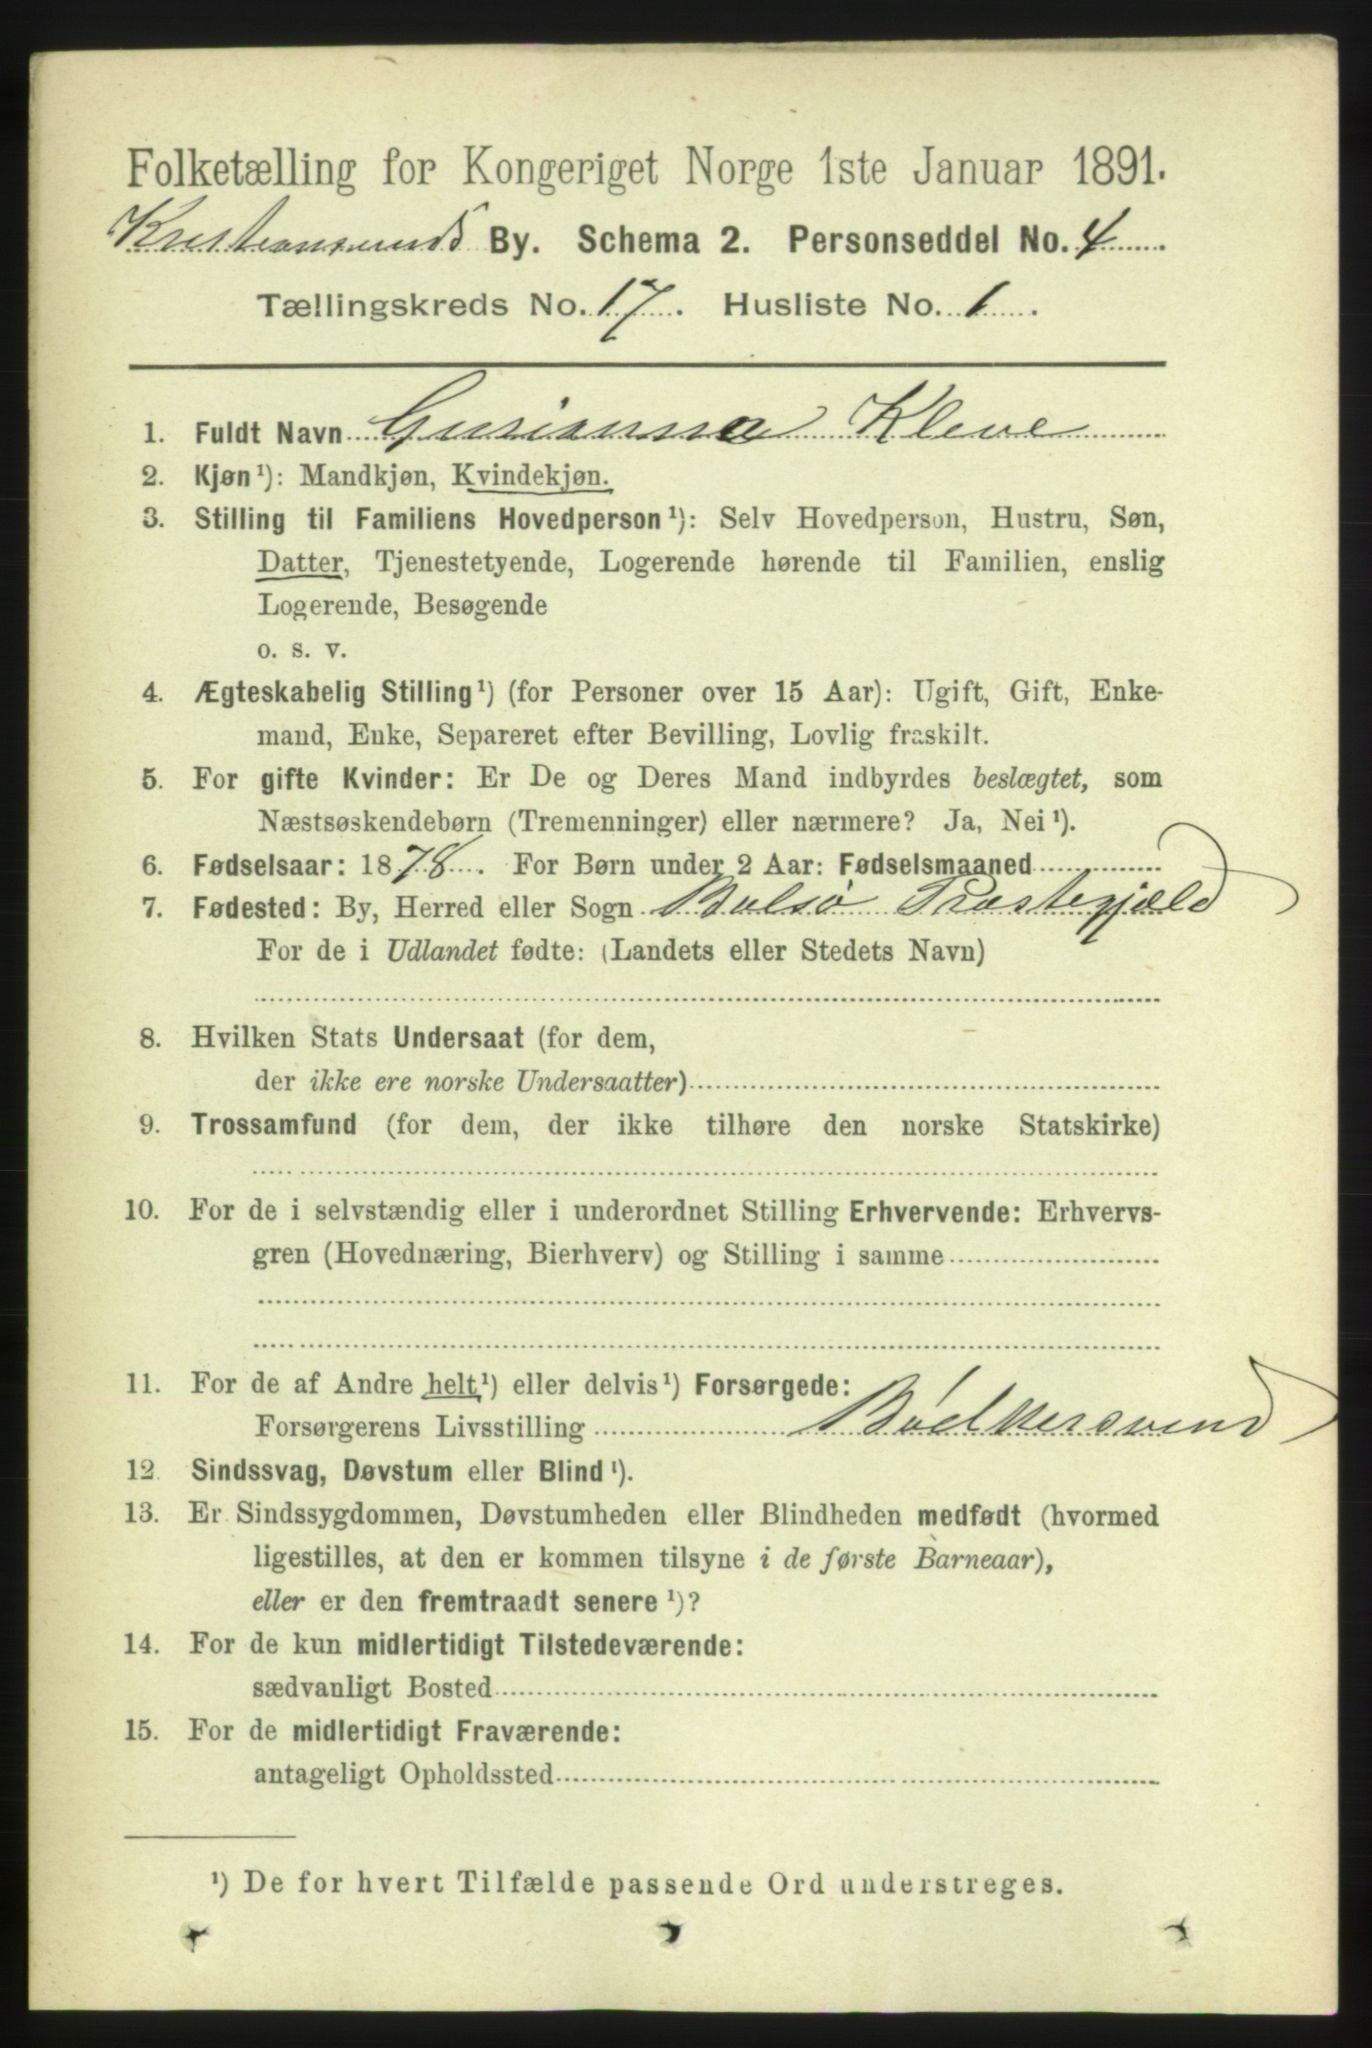 Folketælling for Kongeriget Norge 1ste Januar 1891.
Kristianssunds By. Schema 2. Personseddel No. 4
Tællingskreds No. 17. Husliste No. 1.
1. Fuldt Navn Gurianna Kleve
2. Kjøn¹): Mandkjøn, Kvindekjøn.
3. Stilling til Familiens Hovedperson¹): Selv Hovedperson, Hustru, Søn,
Datter, Tjenestetyende, Logerende hørende til Familien, enslig
Logerende, Besøgende
o. s. v.
4. Ægteskabelig Stilling¹) (for Personer over 15 Aar): Ugift, Gift, Enke-
mand, Enke, Separeret efter Bevilling, Lovlig fraskilt.
5. For gifte Kvinder: Er De og Deres Mand indbyrdes beslægtet, som
Næstsøskendebørn (Tremenninger) eller nærmere? Ja, Nei¹).
6. Fødselsaar: 1878. For Børn under 2 Aar: Fødselsmaaned
7. Fødested: By, Herred eller Sogn Bolsø Præstegjæld
For de i Udlandet fødte: (Landets eller Stedets Navn)
8. Hvilken Stats Undersaat (for dem,
der ikke ere norske Undersaatter)
9. Trossamfund (for dem, der ikke tilhøre den norske Statskirke)
10. For de i selvstændig eller i underordnet Stilling Erhvervende: Erhvervs-
gren (Hovednæring, Bierhverv) og Stilling i samme
11. For de af Andre helt¹) eller delvis¹) Forsørgede:
Forsørgerens Livsstilling Bødkersvend
12. Sindssvag, Døvstum eller Blind¹).
13. Er Sindssygdommen, Døvstumheden eller Blindheden medfødt (hvormed
ligestilles, at den er kommen tilsyne i de første Barneaar),
eller er den fremtraadt senere¹)?
14. For de kun midlertidigt Tilstedeværende:
sædvanligt Bosted
15. For de midlertidigt Fraværende:
antageligt Opholdssted
¹) De for hvert Tilfælde passende Ord understreges.